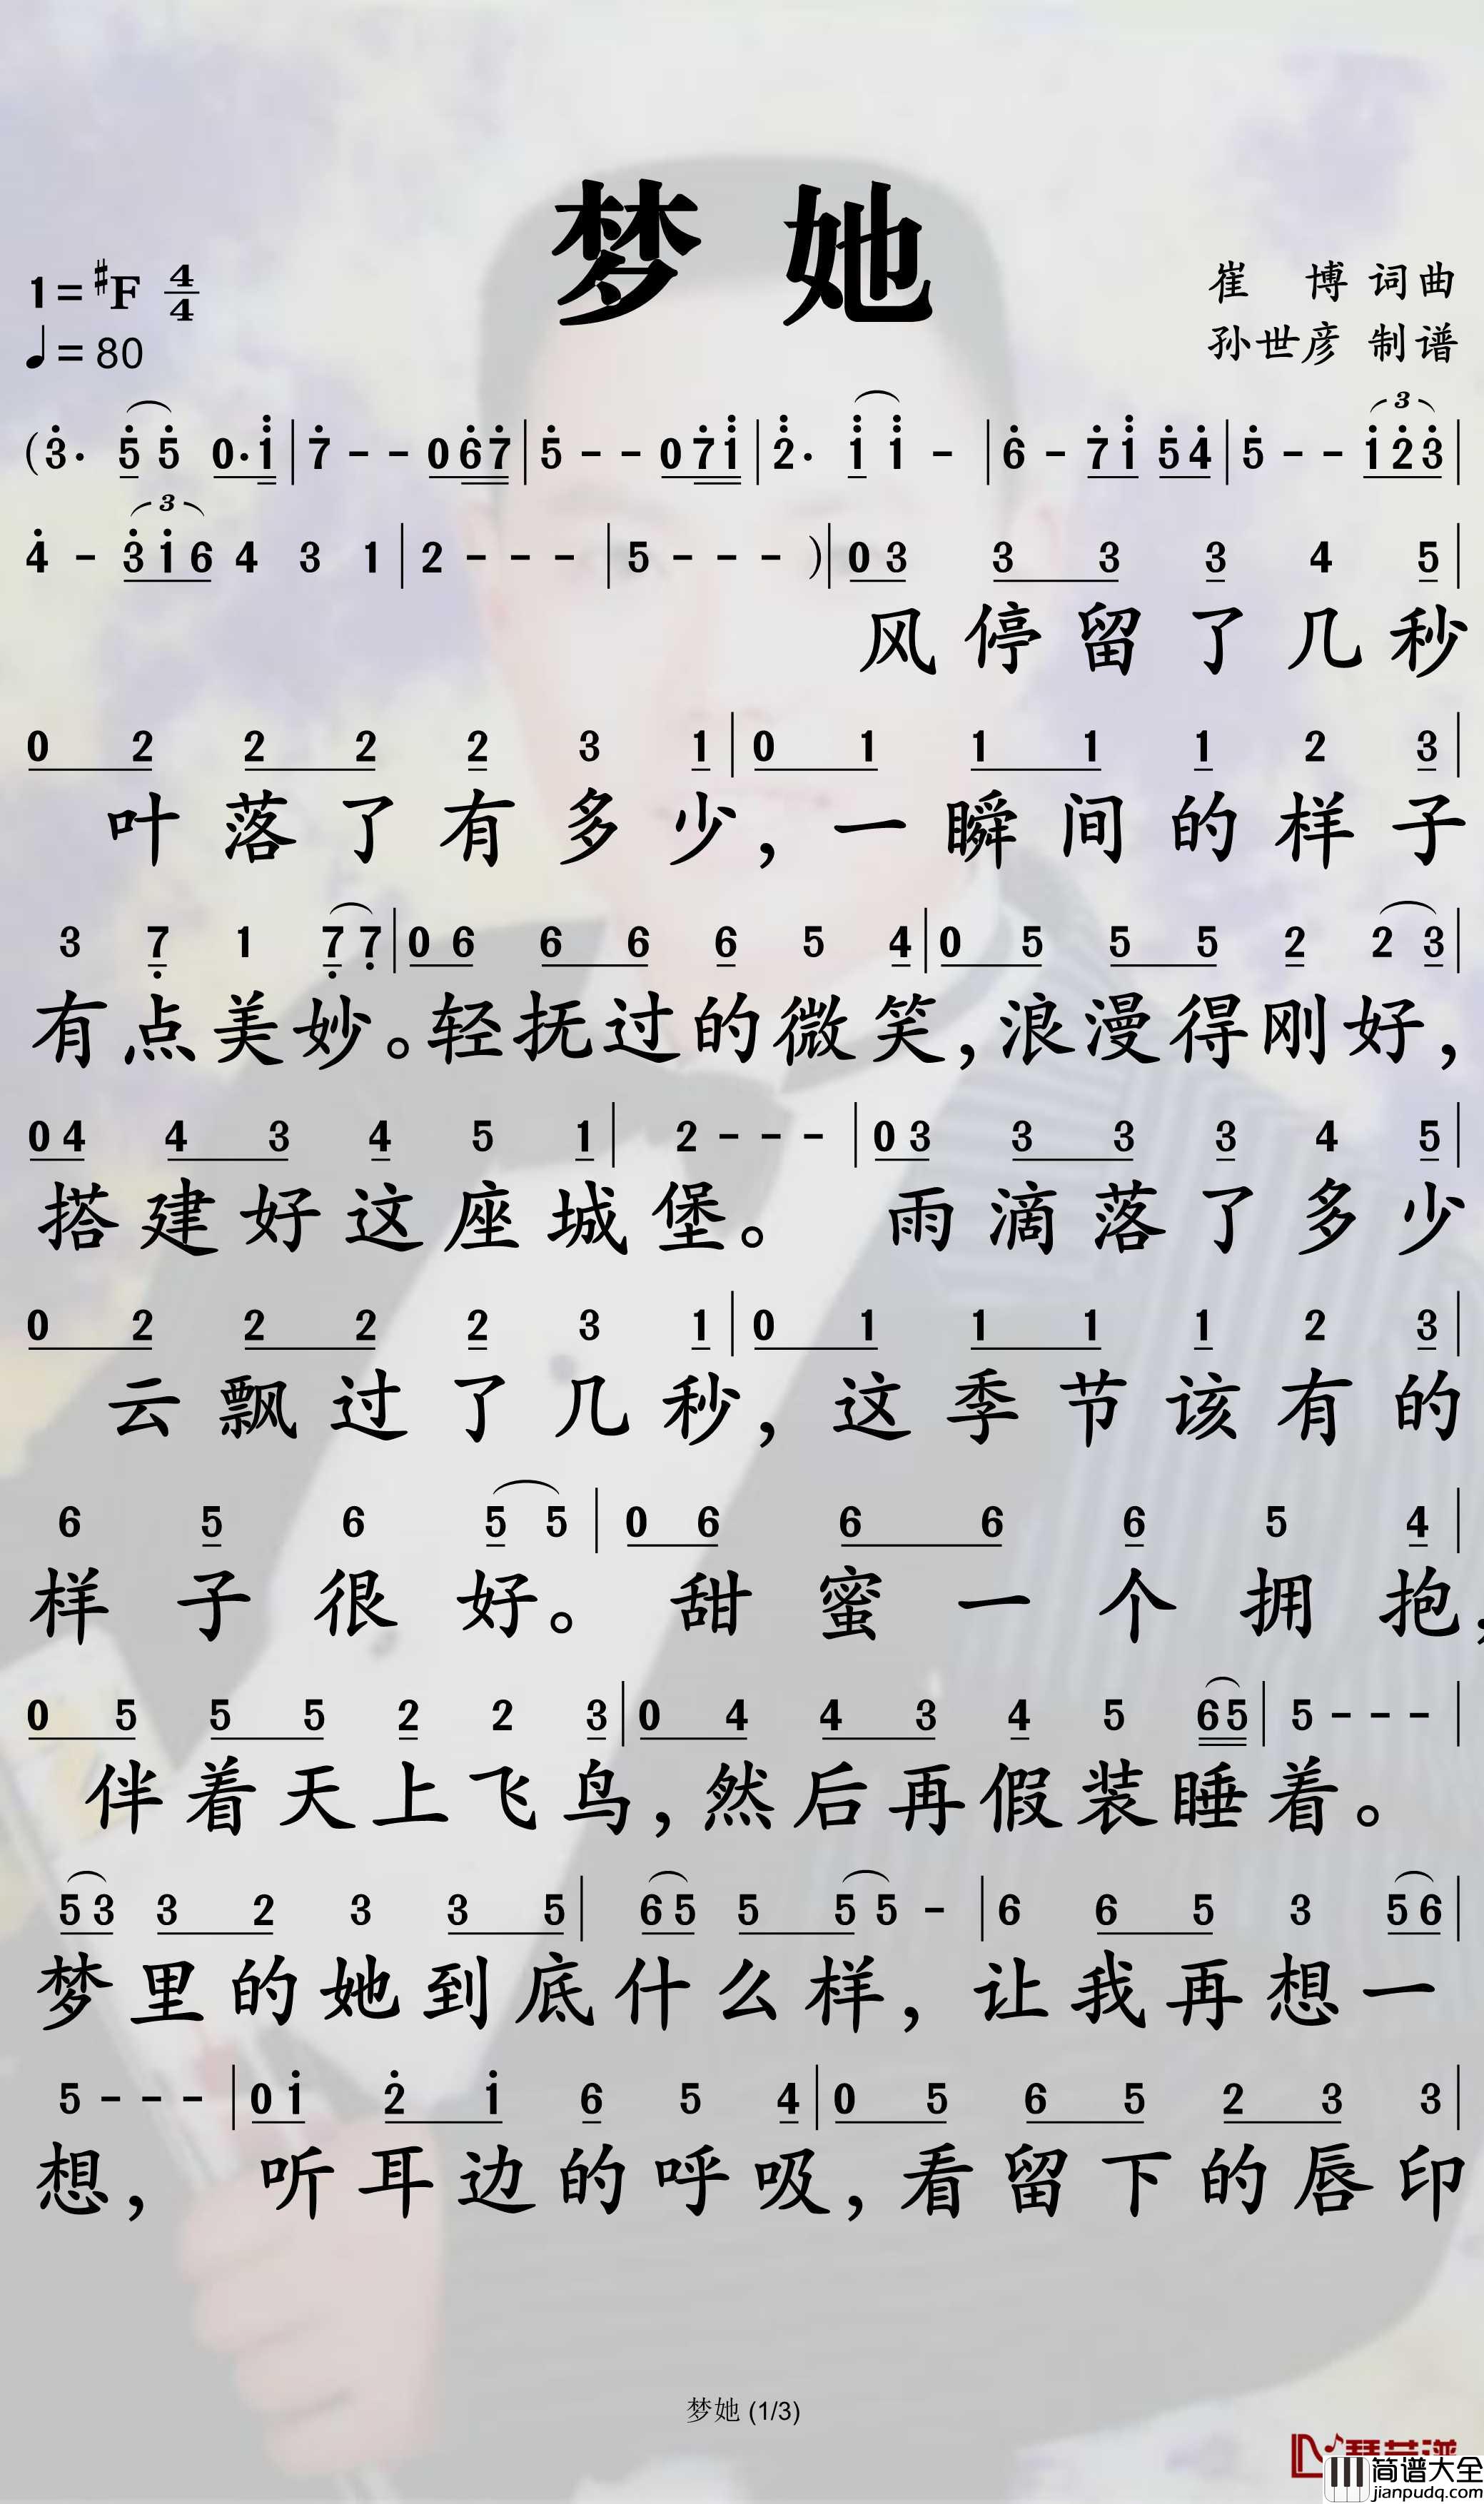 梦 她
1=#F 4/4
♩=80
崔 博 词曲
孙世彦 制谱
(3· 5 5 0·1 | 7 - - 0 6 7 | 5 - - 0 7 1 | 2· 1 1 - | 6 - 7 1 5 4 | 5 - - 3 1 2 3 |
4 - 3 3 1 6 4 3 1 | 2 - - - | 5 - - - ) | 0 3 3 3 3 4 5 |
风停留了几秒
0 2 2 2 2 3 1 | 0 1 1 1 1 2 3 |
叶落了有多少，一瞬间的样子
3 7 1 7 7 | 0 6 6 6 6 5 4 | 0 5 5 5 2 2 3 |
有点美妙。轻抚过的微笑，浪漫得刚好，
0 4 4 3 4 5 1 | 2 - - - | 0 3 3 3 3 4 5 |
搭建好这座城堡。 雨滴落了多少
0 2 2 2 2 3 1 | 0 1 1 1 1 2 3 |
云飘过了几秒，这季节该有的
6 5 6 5 5 | 0 6 6 6 6 5 4 |
样子很好。 甜蜜一个拥抱，
0 5 5 5 2 2 3 | 0 4 4 3 4 5 6 5 | 5 - - - |
伴着天上飞鸟，然后再假装睡着。
5 3 3 2 3 3 5 | 6 5 5 5 5 - | 6 6 5 3 5 6 |
梦里的她到底什么样，让我再想一
5 - - - | 0 1 2 1 6 5 4 | 0 5 6 5 2 3 3 |
想， 听耳边的呼吸，看留下的唇印
梦她 (1/3)
简谱大全
jianpudq.com